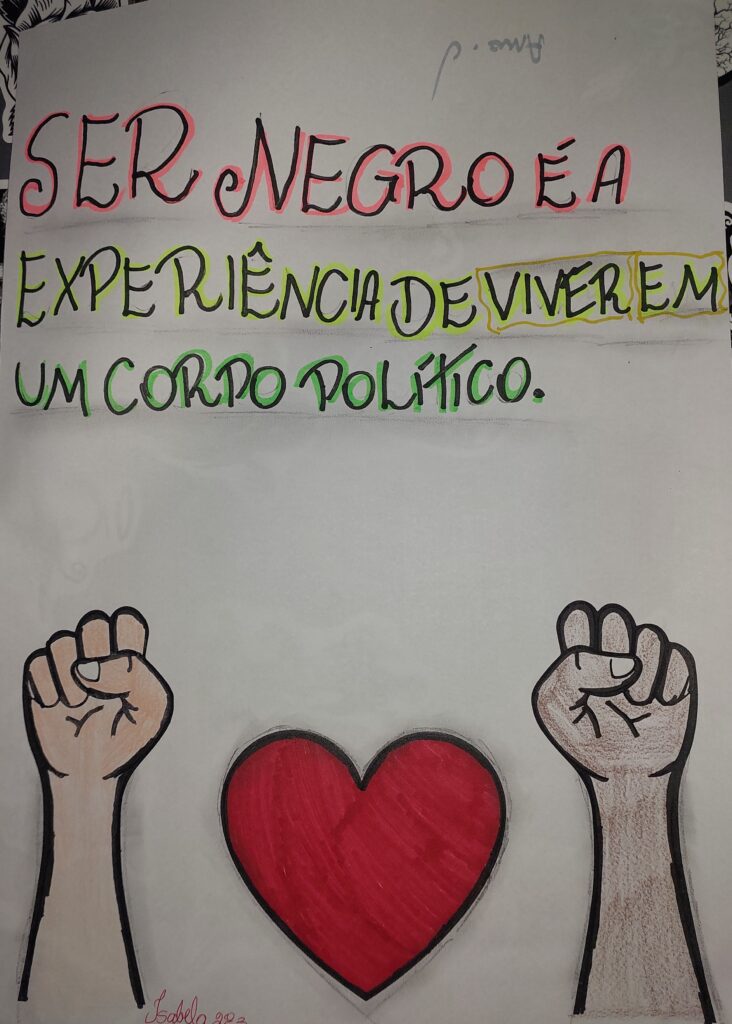 SER NEGRO É A
EXPERIÊNCIA DE VIVER EM
UM CORPO POLÍTICO.
Isabela